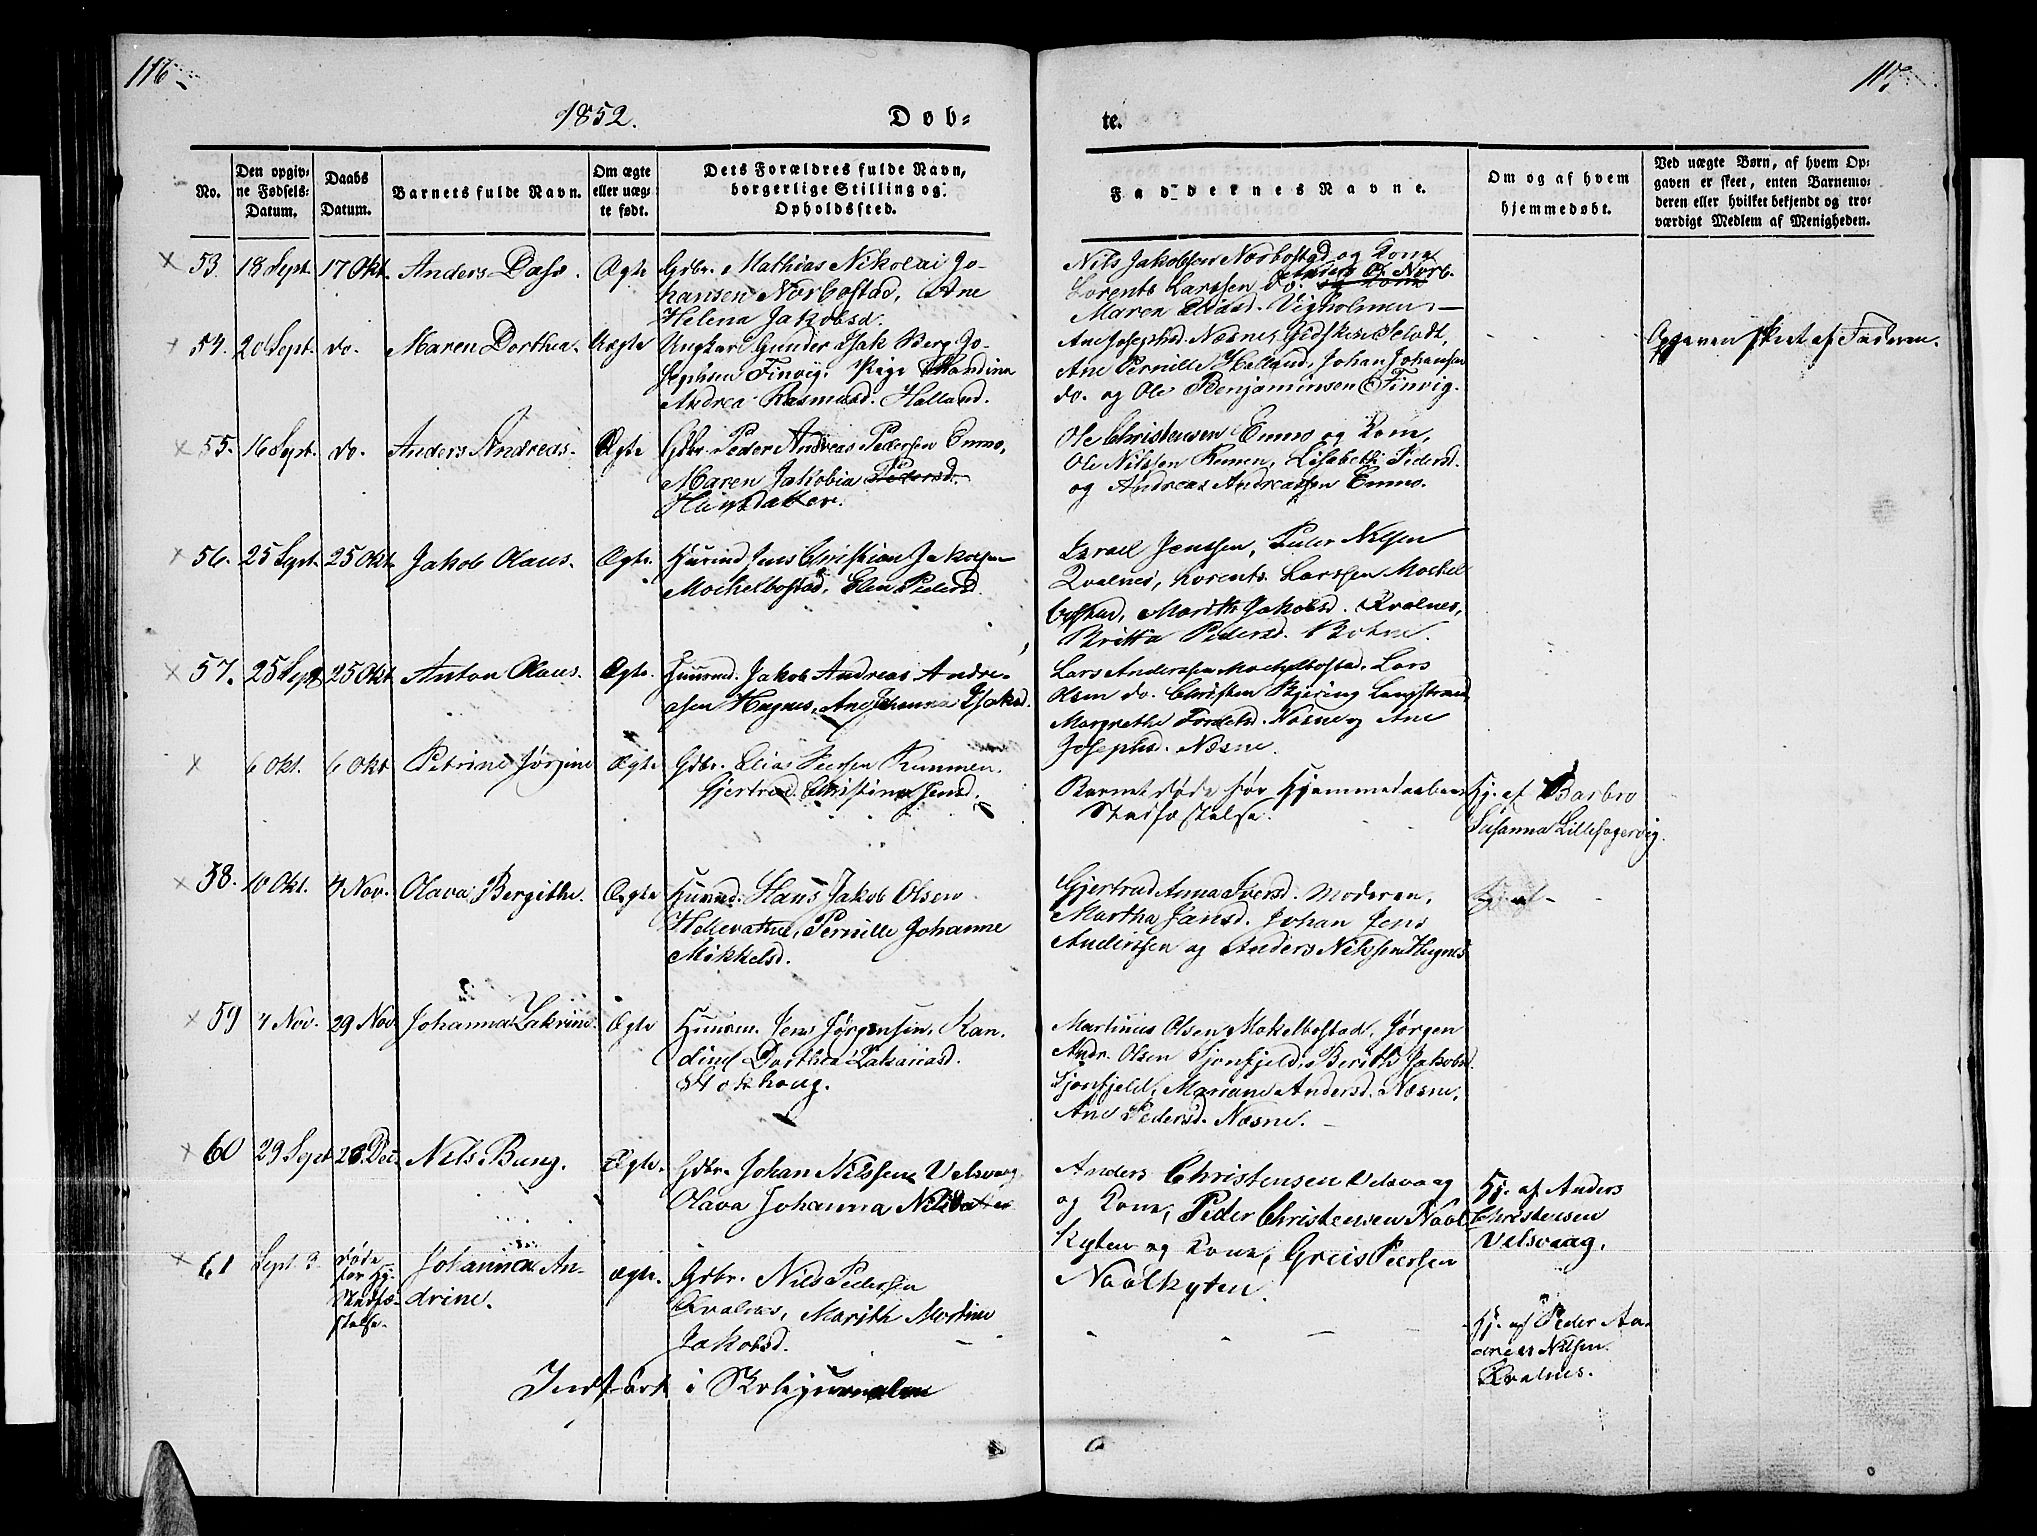 116
117
1852.
Døb-
te.
No.
Den opgiv-
ne Fødsels-
Datum.
Daabs
Datum.
Barnets fulde Navn.
Om ægte
eller uæg-
te født.
Dets Forældres fulde Navn,
borgerlige Stilling og
Opholdssted.
Faddernes Navne.
Om og af hvem
hjemmedøbt.
Ved uægte Børn, af hvem Op-
gaven er skeet, enten Barnemo-
deren eller hvilket bekjendt og tro-
værdigt Medlem af Menigheden.
53. 18 Sept. 17 Okt. Anders Dass. Ægte Gdbr. Mathias Nikolai Jo-
hansen Norbostad, Ane
Helena Jakobsd.
Nils Jakobsen Norbostad og Kone
Lorents Larssen do. Anders O. Norb.
Maren Eliasd. Vigholmen. —
54. 20 Sept. do. Maren Dorthea. Uægte Ungkarl Gunder Isak Berg Jo-
sephsen Finvig. Pige Handina
Andrea Rasmusd. Halland.
Ane Josephsd. Næsne, Gidsken
Ane Pernille Halland, Johan Johansen
do. og Ole Benjaminsen Finvig.
Opgaven skeet af Faderen.
55. 16 Sept. do. Anders Andreas. Ægte Gdbr. Peder Andreas Pedersen Emmo,
Maren Jakobia Pedersd.
Hansdatter.
Ole Christensen Emmo og Kone,
Ole Nilssen Remen, Lisabeth Pedersd.
og Andreas Andreassen Emmo.
56. 25 Sept. 25 Okt. Jakob Olaus. Ægte. Huusmd. Jens Christian Jakobsen
Mochelbostad, Elen Pedersd.
Israel Jenssen, Peder Nilsen
Qvalnes, Lorents Larssen Mockel-
bostad, Marith Jakobsd. Kvalnes,
Britta Pedersd.
57. 25 Sept 25 Okt Anton Olaus. Ægte. Huusmd. Jakob Andreas Andre-
asen Hugnes, Ane Johanna Isaksd.
Lars Anderssen Mochelbostad. Lars
Olsen do. Christen Bjering Langstrand
Margrethe Næsne og Ane
Josephsd. Næsne.
6 Okt. 6 Okt Petrine Jørgine Ægte Gdbr. Elias Peersen Remmen.
Gjertrud Christina Jensd.
Barnet døde før Hjemmedaabens
Stadfæstelse.
Hj. af Barbro
Susanna Lillefagervig.
58. 10 Okt. 7 Nov. Olava Bergithe. Ægte Huusmd. Hans Jakob Olsen
Pernille Johanne
Mikkelsd.
Gjertrud Anna Iversd. Moderen,
Martha Jansd. Johan Jens
Anderssen og Anders Nilssen Hugnes
Hj. af
59 7 Nov. 29 Nov Johanna Zakrine. Ægte Huusm. Jens Jørgensen. Kan-
dine Dorthea Zakariasd.
Stokhaug.
Martinus Olsen Mokelbostad, Jørgen
Andr. Olsen Sjonfjeld, Berith Jakobsd.
Sjonfjeld, Mariane Andersd. Næsne,
Ane Pedersd. Næsne. —
60 29 Sept 28. Dec. Nils Bung. Ægte. Gdbr. Johan Nilssen Velsvaag
Olava Johanna Nilsdatter
Anders Christensen Velsvaag
og Kone, Peder Christensen Naal-
kyten og Kone, Greis Peersen
Naalkyten.
Hj. af Anders
Christensen
Velsvaag.
61 Sept 3. døde
før Hj.
Stadfæ-
stelse. Johanna An-
drine. ægte. Gdbr. Nils Pedersen
Qvalnes, Marith Martine
Jakobsd.
Hj. af Peder An-
dreas Nilsen
Kvalnes.
Indført i Skolejurnalen